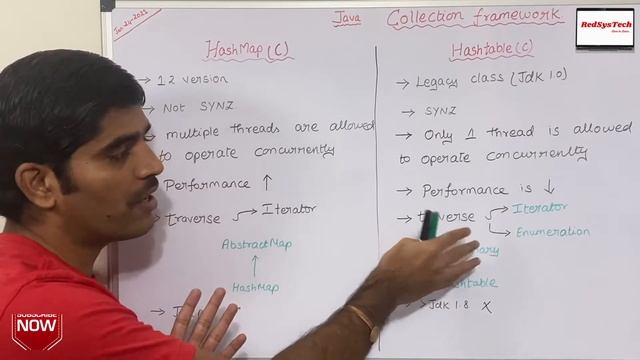 Jan-24-2021
Java
Collection framework
RedSysTech
HashMap (C)
→ 1.2 version
→ Not SYNZ
multiple threads are allowed
to operate concurrently
Performance ↑
→ traverse → Iterator
AbstractMap
↑
HashMap
→
Hashtable (C)
→ Legacy class (Jdk 1.0)
→ SYNZ
→ Only 1 thread is allowed
to operate concurrenlty
→ Performance is ↓
→ traverse → Iterator
→ Enumeration
→ Jdk 1.8 X
SUBSCRIBE
NOW